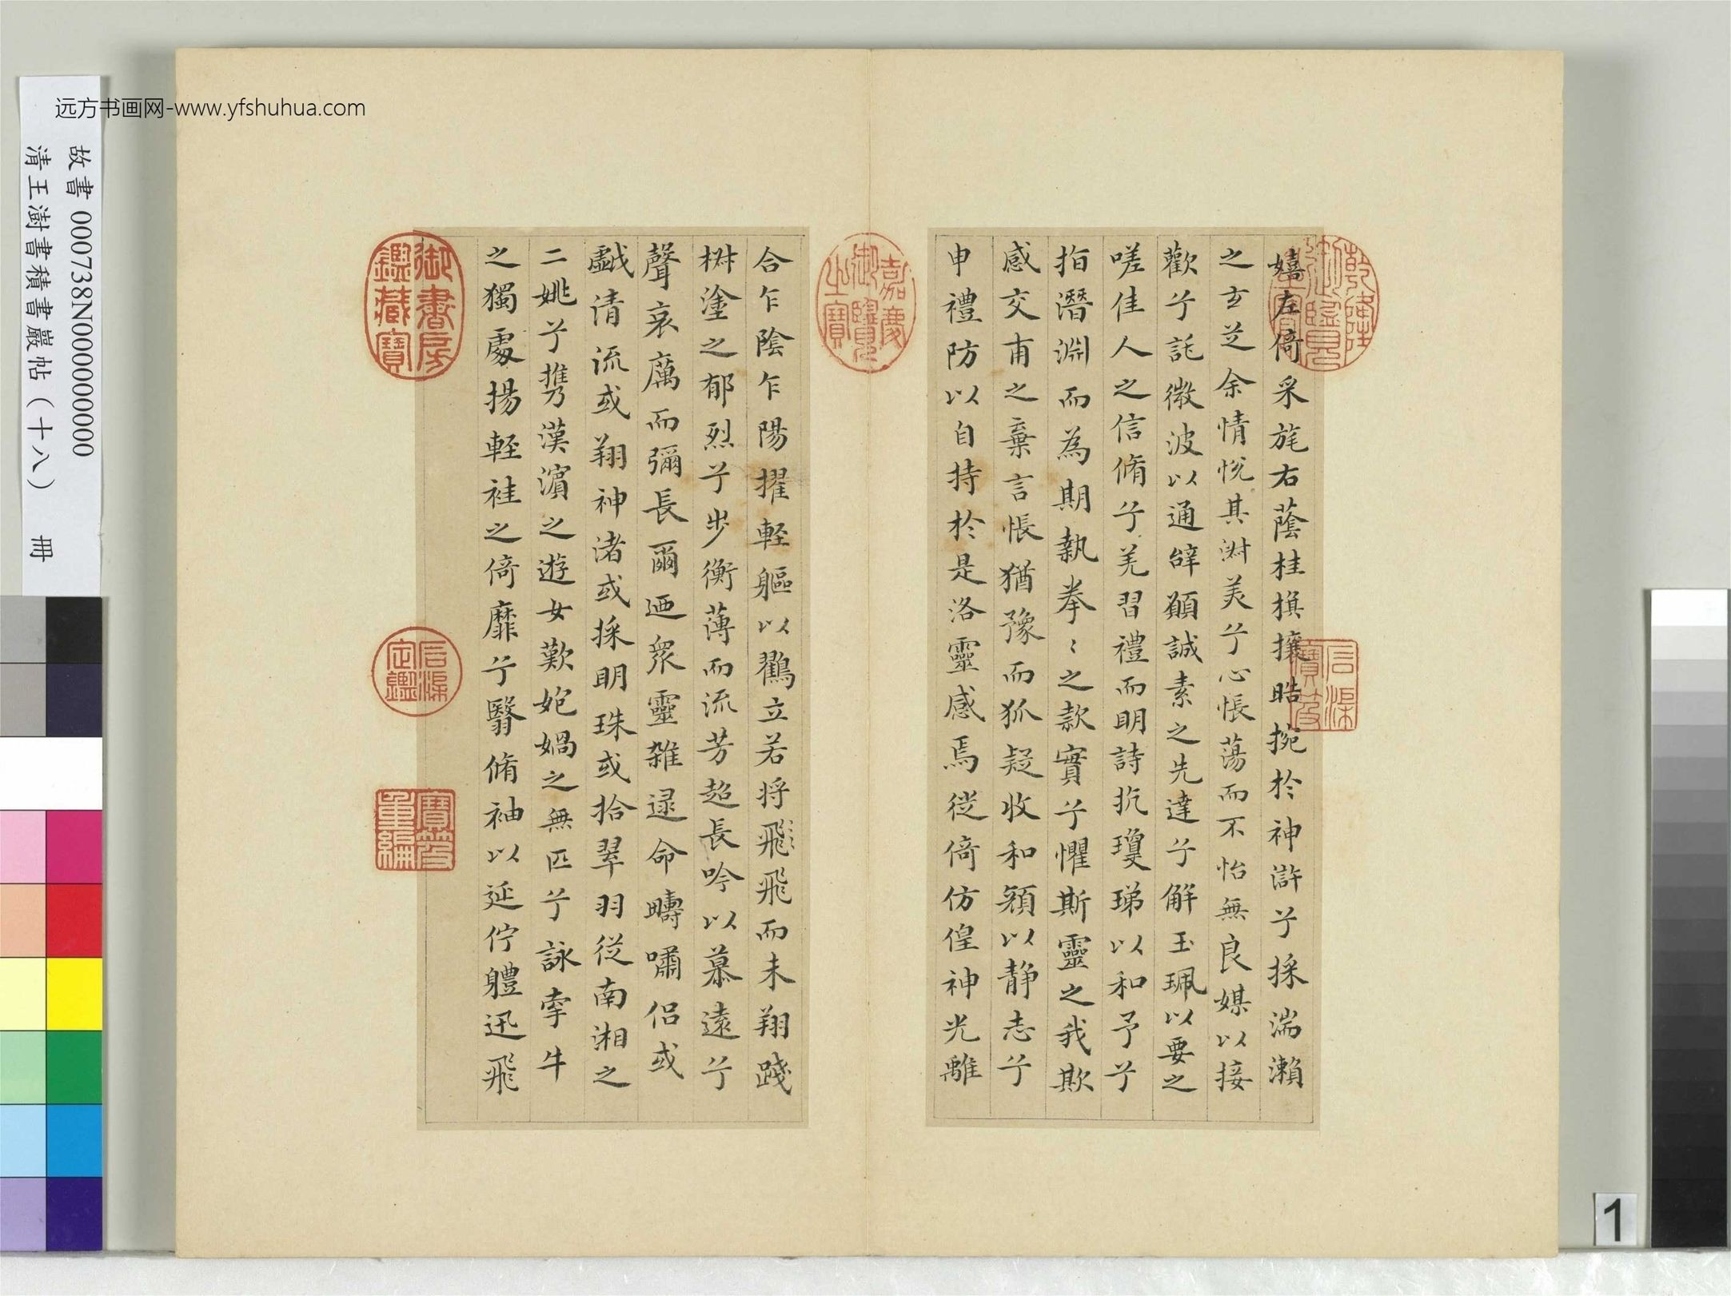 远方书画网-www.yfshuhua.com
故書 000738N000000000
清王澍書積書巖帖（十八） 冊
嬉左倚采旄右蔭桂旗攘皓捥於神滸兮採湍瀨
之玄芝余情悅其淑美兮心悵蕩而不怡無良媒以接
歡兮託微波以通辭願誠素之先達兮解玉珮以要之
嗟佳人之信脩兮羌習禮而明詩抗瓊珶以和予兮
指潛淵而為期執拳〻之款實兮懼斯靈之我欺
感交甫之棄言悵猶豫而狐疑收和顏以靜志兮
申禮防以自持於是洛靈感焉從倚仿偟神光離
合乍陰乍陽擢輕軀以鸛立若將飛飛而未翔踐
椒塗之郁烈兮步衡薄而流芳超長吟以慕遠兮
聲哀厲而彌長爾迺眾靈雜遝命疇嘯侶或
戲清流或翔神渚或採明珠或拾翠羽從南湘之
二姚兮攜漢濱之遊女歎媧之無匹兮詠牽牛
之獨處揚輕袿之倚靡兮翳脩袖以延佇體迅飛
乾隆御覽之寶
石渠寶笈
嘉慶御覽之寶
御書房鑑藏寶
石渠定鑑
寶笈重編
1